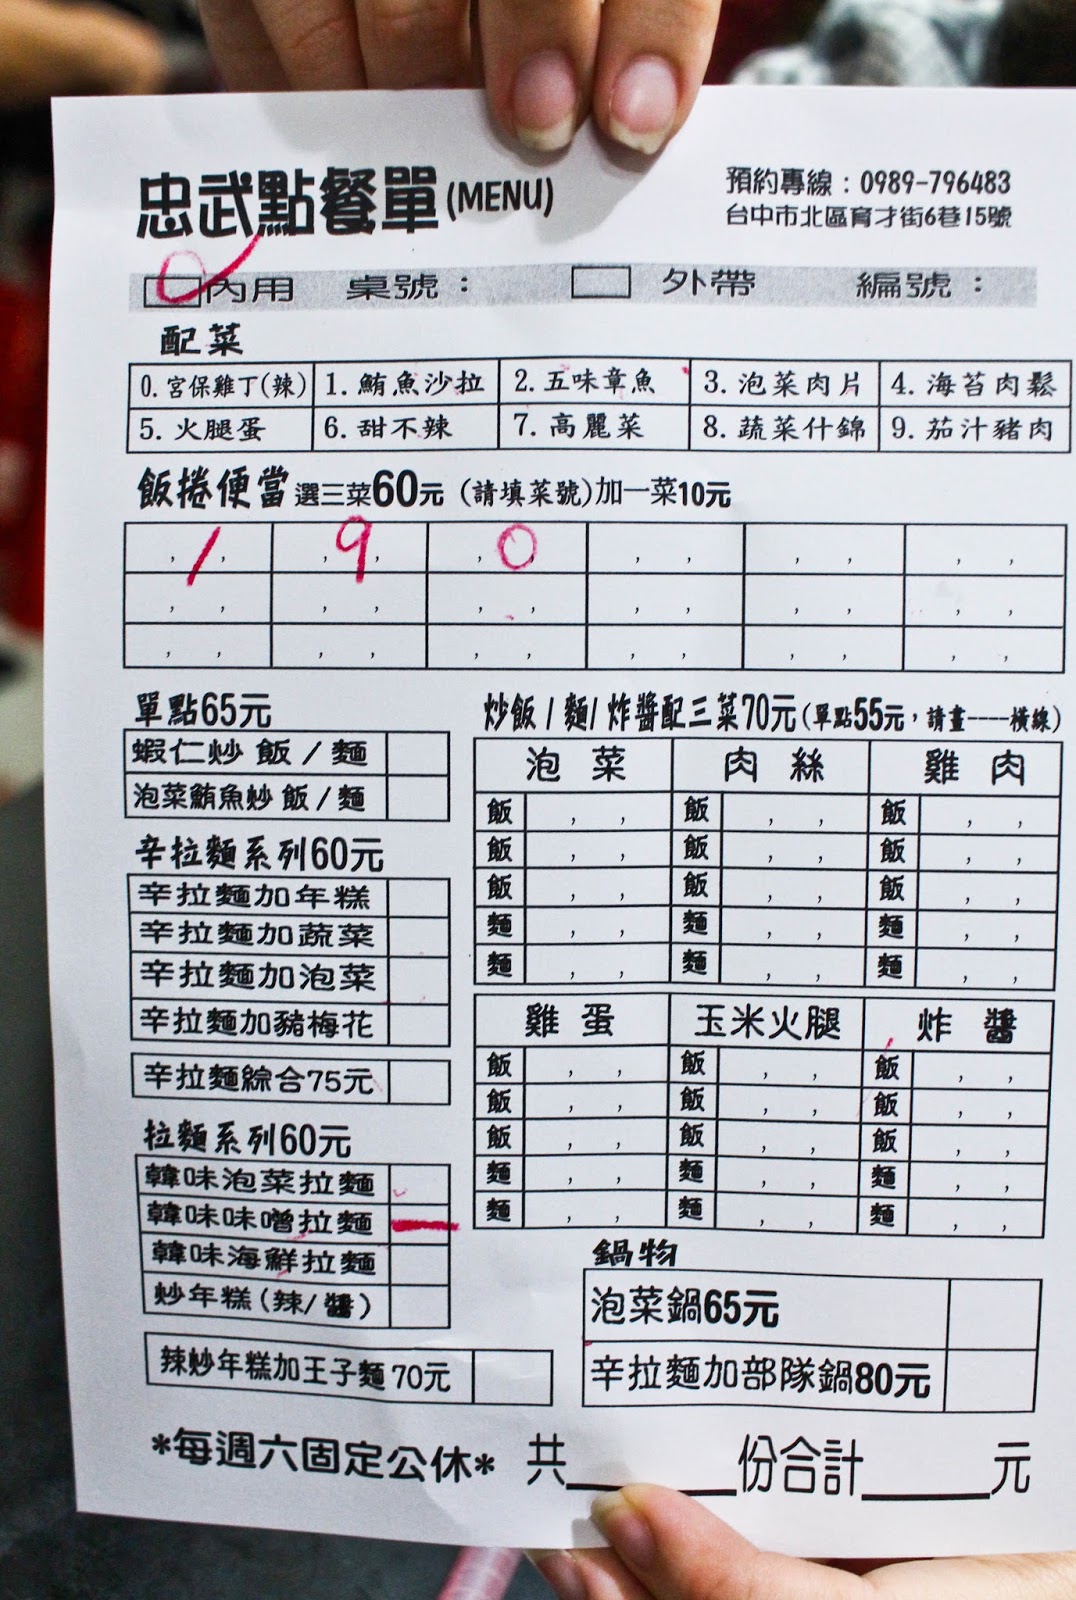 忠武點餐單(MENU)
預約專線：0989-796483
台中市北區育才街6巷15號
內用 桌號： 外帶 編號：
配菜
0.宮保雞丁(辣) 1.鮪魚沙拉 2.五味章魚 3.泡菜肉片 4.海苔肉鬆
5.火腿蛋 6.甜不辣 7.高麗菜 8.蔬菜什錦 9.茄汁豬肉
飯捲便當選三菜60元(請填菜號)加一菜10元
, 1 , , 9 , , 0 , , , , , , ,
, , , , , , , , , , , ,
, , , , , , , , , , , ,
單點65元
蝦仁炒飯/麵
泡菜鮪魚炒飯/麵
辛拉麵系列60元
辛拉麵加年糕
辛拉麵加蔬菜
辛拉麵加泡菜
辛拉麵加豬梅花
辛拉麵綜合75元
拉麵系列60元
韓味泡菜拉麵
韓味味噌拉麵
韓味海鮮拉麵
炒年糕(辣/醬)
辣炒年糕加王子麵70元
炒飯/麵/炸醬配三菜70元(單點55元，請畫----橫線)
泡菜 肉絲 雞肉
飯 , , 飯 , , 飯 , ,
飯 , , 飯 , , 飯 , ,
飯 , , 飯 , , 飯 , ,
麵 , , 麵 , , 麵 , ,
麵 , , 麵 , , 麵 , ,
雞蛋 玉米火腿 炸醬
飯 , , 飯 , , 飯 , ,
飯 , , 飯 , , 飯 , ,
飯 , , 飯 , , 飯 , ,
麵 , , 麵 , , 麵 , ,
麵 , , 麵 , , 麵 , ,
鍋物
泡菜鍋65元
辛拉麵加部隊鍋80元
*每週六固定公休* 共______份合計_____元